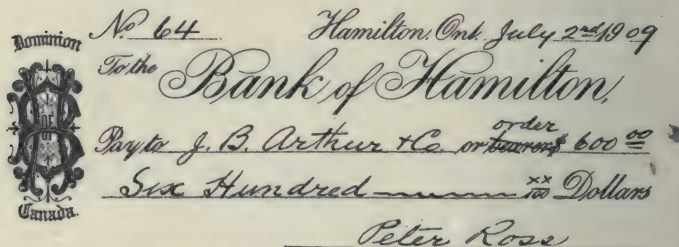 Dominion
Canada.
No 64 Hamilton, Ont. July 2nd 1909
To the Bank of Hamilton,
order
Pay to J. B. Arthur & Co. or bearer $ 600 00
Six Hundred xx/100 Dollars
Peter Ross